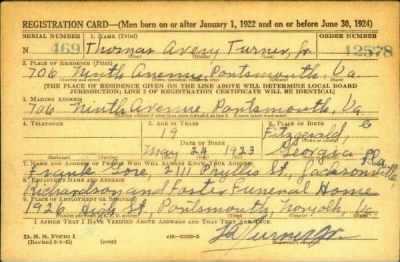 REGISTRATION CARD—(Men born on or after January 1, 1922 and on or before June 30, 1924)
SERIAL NUMBER 1. NAME (Print) ORDER NUMBER
N 469 Thomas Avery Turner, Jr. 12578
2. PLACE OF RESIDENCE (Print)
706 Ninth Avenue Portsmouth, Va
(THE PLACE OF RESIDENCE GIVEN ON THE LINE ABOVE WILL DETERMINE LOCAL BOARD
JURISDICTION; LINE 2 OF REGISTRATION CERTIFICATE WILL BE IDENTICAL)
3. MAILING ADDRESS
706 Ninth Avenue Portsmouth, Va
4. TELEPHONE 5. AGE IN YEARS 6. PLACE OF BIRTH
19 Fitzgerald,
DATE OF BIRTH
May 24 1923 Georgia
7. NAME AND ADDRESS OF PERSON WHO WILL ALWAYS KNOW YOUR ADDRESS
Frank Gore, 2111 Phyllis St., Jacksonville Fla
8. EMPLOYER'S NAME AND ADDRESS
Richardson and Foster Funeral Home
9. PLACE OF EMPLOYMENT OR BUSINESS
1926 High St., Portsmouth, Norfolk, Va
I AFFIRM THAT I HAVE VERIFIED ABOVE ANSWERS AND THAT THEY ARE TRUE.
D. S. S. FORM 1
(Revised 6-1-42)